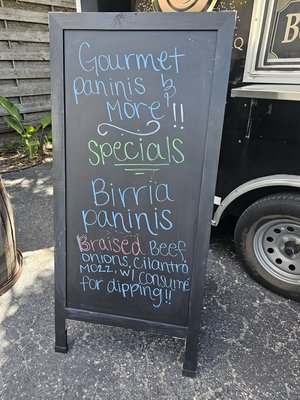 Gourmet
paninis &
More!!
Specials
Birria
paninis
Braised Beef,
onions, cilantro
mozz, w/ Consumé
for dipping!!